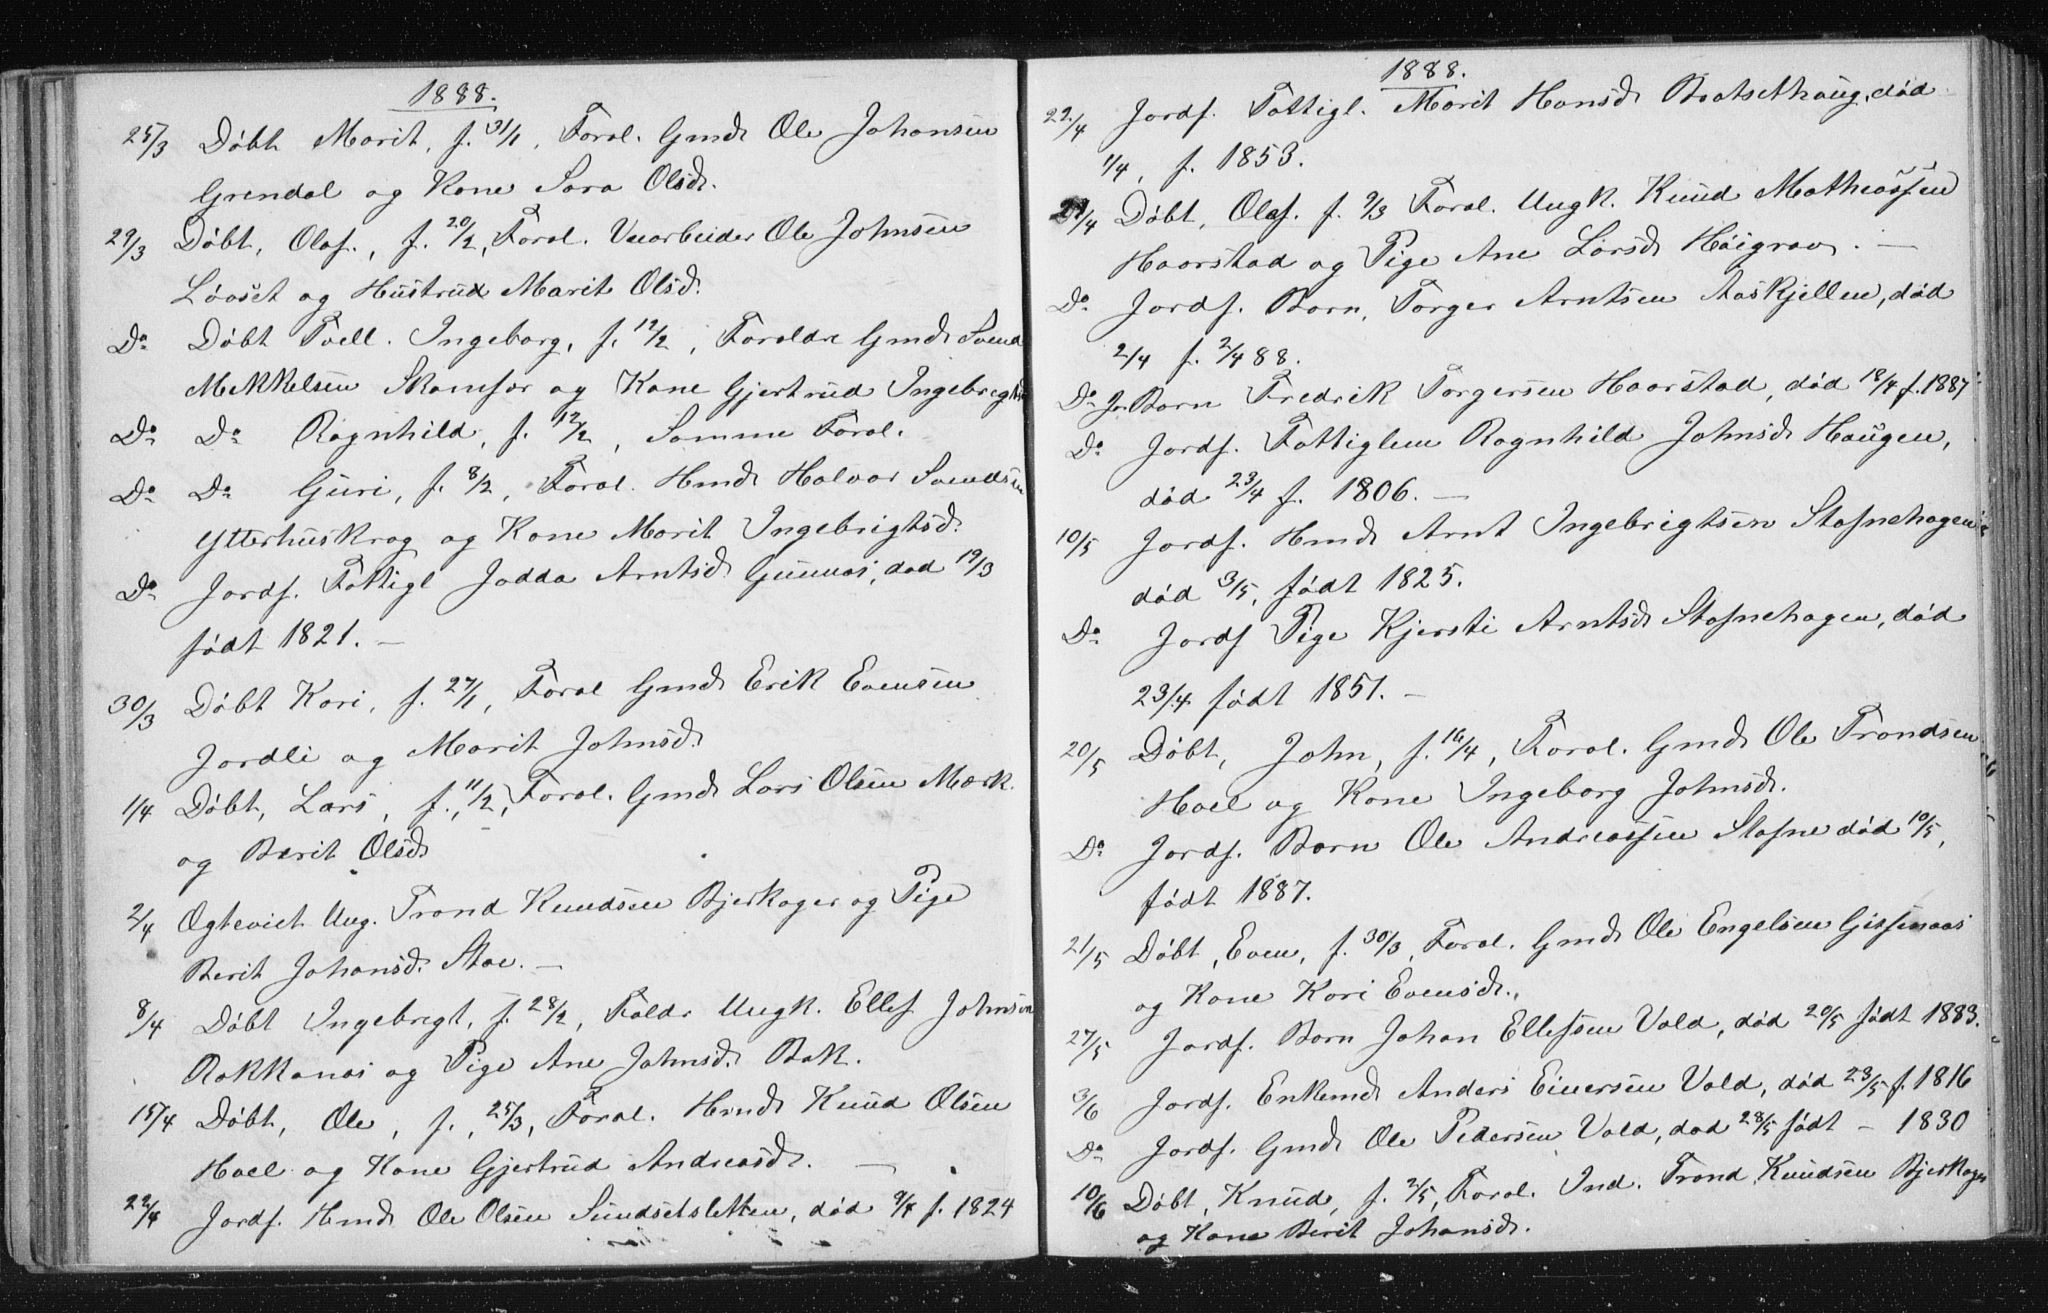 1888.
25/3 Døbt Marit, f. 31/1, Foræl. Gmd. Ole Johansen
Grendal og Kone Sara Olsd.
29/3 Døbt, Olaf, f. 20/2, Foræl. Veiarbeider Ole Johnsen
Løvset og Hustrud Marit Olsd.
Do Døbt Tvell. Ingeborg, f. 12/2, Foræeldre Gmd. Svend
Mikkelsen Skamfær og Kone Gjertrud Ingebrigtsd
Do Do Ragnhild, f. 12/2, Samme Foræl.
Do Do Guri, f. 8/2, Foræl. Hmd. Halvor Svendsen
Ytterhuskrog og Kone Marit Ingebrigtsd.
Do Jordf. Fattigl Jadda Arntsd. Gunnæs, død 19/3
født 1821. —
30/3 Døbt Kari, f. 27/1, Foræl Gmd. Erik Evensen
Jordli og Marit Johnsd.
1/4 Døbt, Lars, f. 11/2, Foræl. Gmd. Lars Olsen Mærk
og Berit Olsd.
2/4 Ægteviet Ung. Trond Knudsen Bjerkager og Pige
Berit Johansd. Stae. —
8/4 Døbt Ingebrigt, f. 28/2, Foldr Ungk. Ellef Johnsen
Rokkonæs og Pige Ane Johnsd. Bak.
15/4 Døbt, Ole, f. 25/3, Foræl. Hmd. Knud Olsen
Hoel og Kone Gjertrud Andreasd. —
22/4 Jordf. Hmd. Ole Olsen Sundsetsletten, død 9/4 f. 1824
1888.
22/4 Jordf. Fattigl. Marit Hansd. Baatsethaug, død
1/4, f. 1853.
29/4 Døbt, Olaf. f. 9/3 Foræl. Ungk. Knud Mathiassen
Haarstad og Pige Ane Larsd. Høigrav. —
Do Jordf. Barn, Torger Arntsen Aaskjellen, død
2/4 f. 2/4 88.
Do Jr. Barn Fredrik Torgersen Haarstad, død 18/4 f. 1887
Do Jordf. Fattiglem Ragnhild Johnsd. Haugen,
død 23/4 f. 1806. —
10/5 Jordf. Hmd. Arnt Ingebrigtsen Stafnehagen
død 3/5, født 1825.
Do Jordf Pige Kjersti Arntsd. Stafnehagen, død
23/4 født 1851. —
20/5 Døbt, John, f. 16/4, Foræl. Gmd. Ole Trondsen
Hoel og Kone Ingeborg Johnsd.
Do Jordf. Barn Ole Andreassen Stafne død 10/5,
født 1887.
21/5 Døbt, Even, f. 30/3, Foræl. Gmd. Ole Engelsen Gisnaas
og Kone Kari Evensd.
27/5 Jordf. Barn Johan Ellefsen Vold, død 20/5 født 1883.
3/6 Jordf. Enkemd Anders Einersen Vold, død 23/5 f. 1816
Do Jordf. Gmd. Ole Pedersen Vold, død 28/5 født — 1830
10/6 Døbt, Knud, f. 2/5, Foræl. Ind. Trond Knudsen Bjerkager
og Kone Berit Johansd.